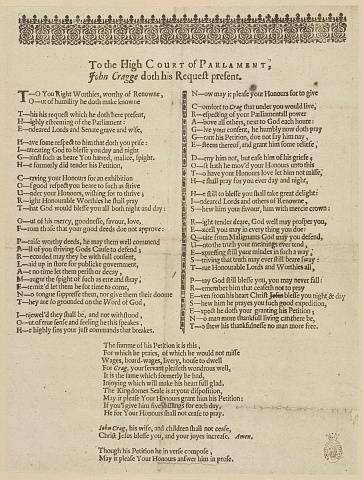 To the High COURT of PARLAMENT,
John Cragge doth his Request present.
T—O You Right Worthies, worthy of Renowne,
O—ut of humility he doth make knowne
T—his his request which he doth here present,
H—ighly esteeming of the Parliament:
E—ndeared Lords and Senate grave and wise,
H—ave some respect to him that doth you prise:
I—ntreating God to blesse you day and night
G—ainst such as beare You hatred, malice, spight.
H—e formerly did tender his Petition,
C—raving your Honours for an exhibition
O—f good respect you beare to such as strive
U—nder your Honours, wishing for to thrive;
R—ight Honourable Worthies he shall pray
T—hat God would blesse you all both night and day:
O—ut of his mercy, goodnesse, favour, love,
F—rom those that your good deeds doe not approve:
P—raise worthy deeds, he may them well commend
A—ll of you striving Gods Cause to defend;
R—ecorded may they be with full consent,
L—aid up in store for publicke government,
A—t no time let them perish or decay,
M—augre the spight of such as erre and stray,
E—rmit'd let them be for time to come,
N—o tongue suppresse them, nor give them their doome
T—hey are so grounded on the Word of God,
I—njewel'd they shall be, and not withstood,
O—ut of true sense and feeling he this speakes,
H—e highly sins your just commands that breakes.
N—ow may it please your Honours for to give
C—omfort to Crag that under you would live,
R—especting of your Parliamentall power
A—bove all others, next to God each houre:
G—ive your consent, he humbly now doth pray
G—rant his Petition, doe not say him nay,
E—steem thereof, and grant him some reliefe,
D—eny him not, but ease him of his griefe;
O—ft hath he mov'd your Honours unto this
T—o have your Honours love let him not misse,
H—e shall pray for you ever day and night,
H—e still to blesse you shall take great delight:
I—ndeared Lords and others of Renowne,
S—hew him your favour, him with mercie crown:
R—ight tender deare, God well may prosper you,
E—xcell you may in every thing you doe:
Q—uite from Malignants God may you defend,
U—nto the truth your meanings ever tend,
E—xpressing still your mindes in such a way,
S—triving that truth may ever still beare sway:
T—rue Honourable Lords and Worthies all,
P—ray God still blesse you, you may never fall:
R—emember him that ceaseth not to pray
E—ven from his heart Christ Jesus blesse you night & day
S—hew him he prayes you such good expedition,
E—xpect he doth your granting his Petition;
N—o man more thankfull living can there be,
T—o shew his thankfulnesse no man more free.
The summe of his Petition it is this,
For which he praies, of which he would not misse
Wages, board-wages, livery, house to dwell
For Crag, your servant pleaseth wondrous well,
It is the same which formerly he had,
Injoying which will make his heart full glad.
The Kingdomes Seale is at your disposition,
May it please Your Honours grant him his Petition:
If you give him five shillings for each day,
He for Your Honours shall not cease to pray.
John Crag, his wife, and children shall not cease,
Christ Jesus blesse you, and your joyes increase. Amen.
Though his Petition he in verse compose,
May it please Your Honours answer him in prose.